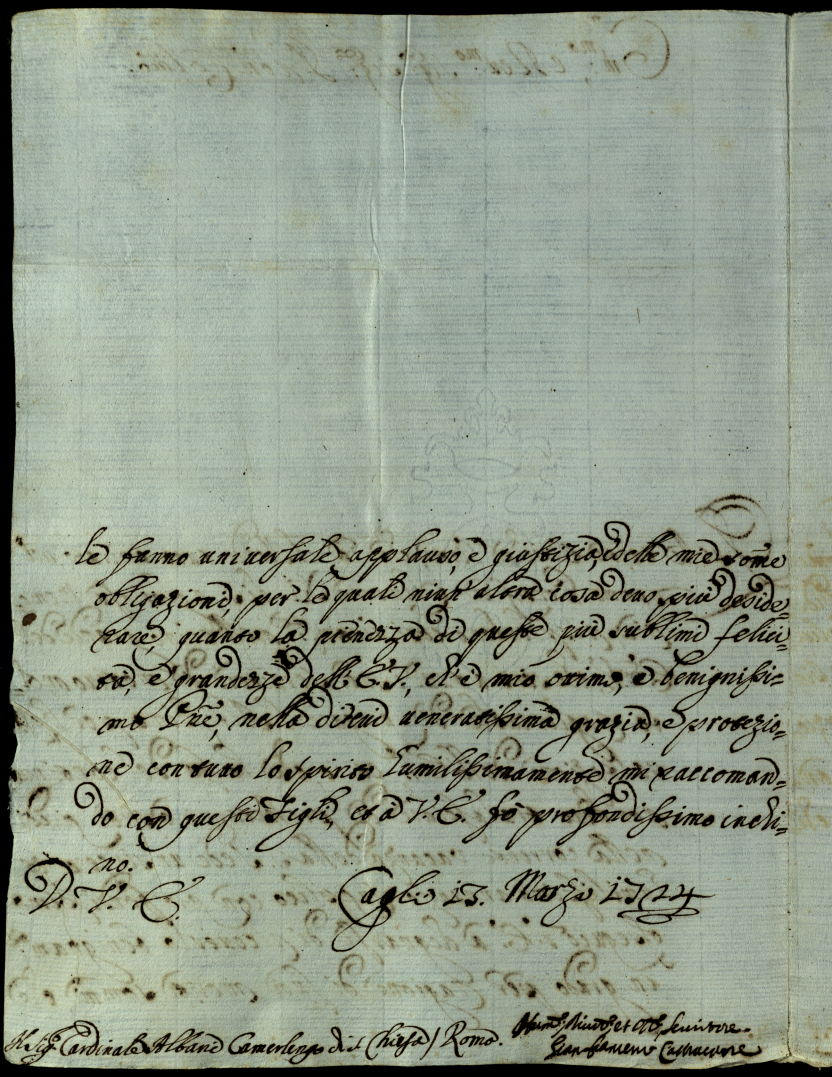 le fanno universale applauso, e giustizia, e delle mie som̃e
obligazioni, per le quali niun altra cosa devo più deside=
rare, quanto la pienezza di queste più sublimi felici=
tà, e grandezze dell'E.V., ch'è mio ottimo, e benignissi=
mo Pnẽ, nella di cui veneratissima grazia, e protezio=
ne con tutto lo spirito humilissimamente mi raccoman=
do con questi Figli, et à V.E. fò profondissimo inchi=
no.
D. V. E. Cagli 13. Marzo 1724
Al Sig.r Cardinale Albani Camerlengo di S. Chiesa / Roma.
Hum.o Divot.o et Obl. Servitore